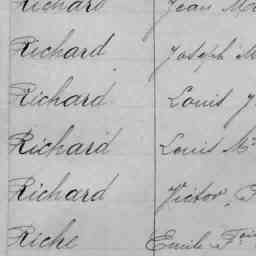 Richard Jean
Richard Joseph M
Richard Louis J
Richard Louis M
Richard Victor
Riche Emile